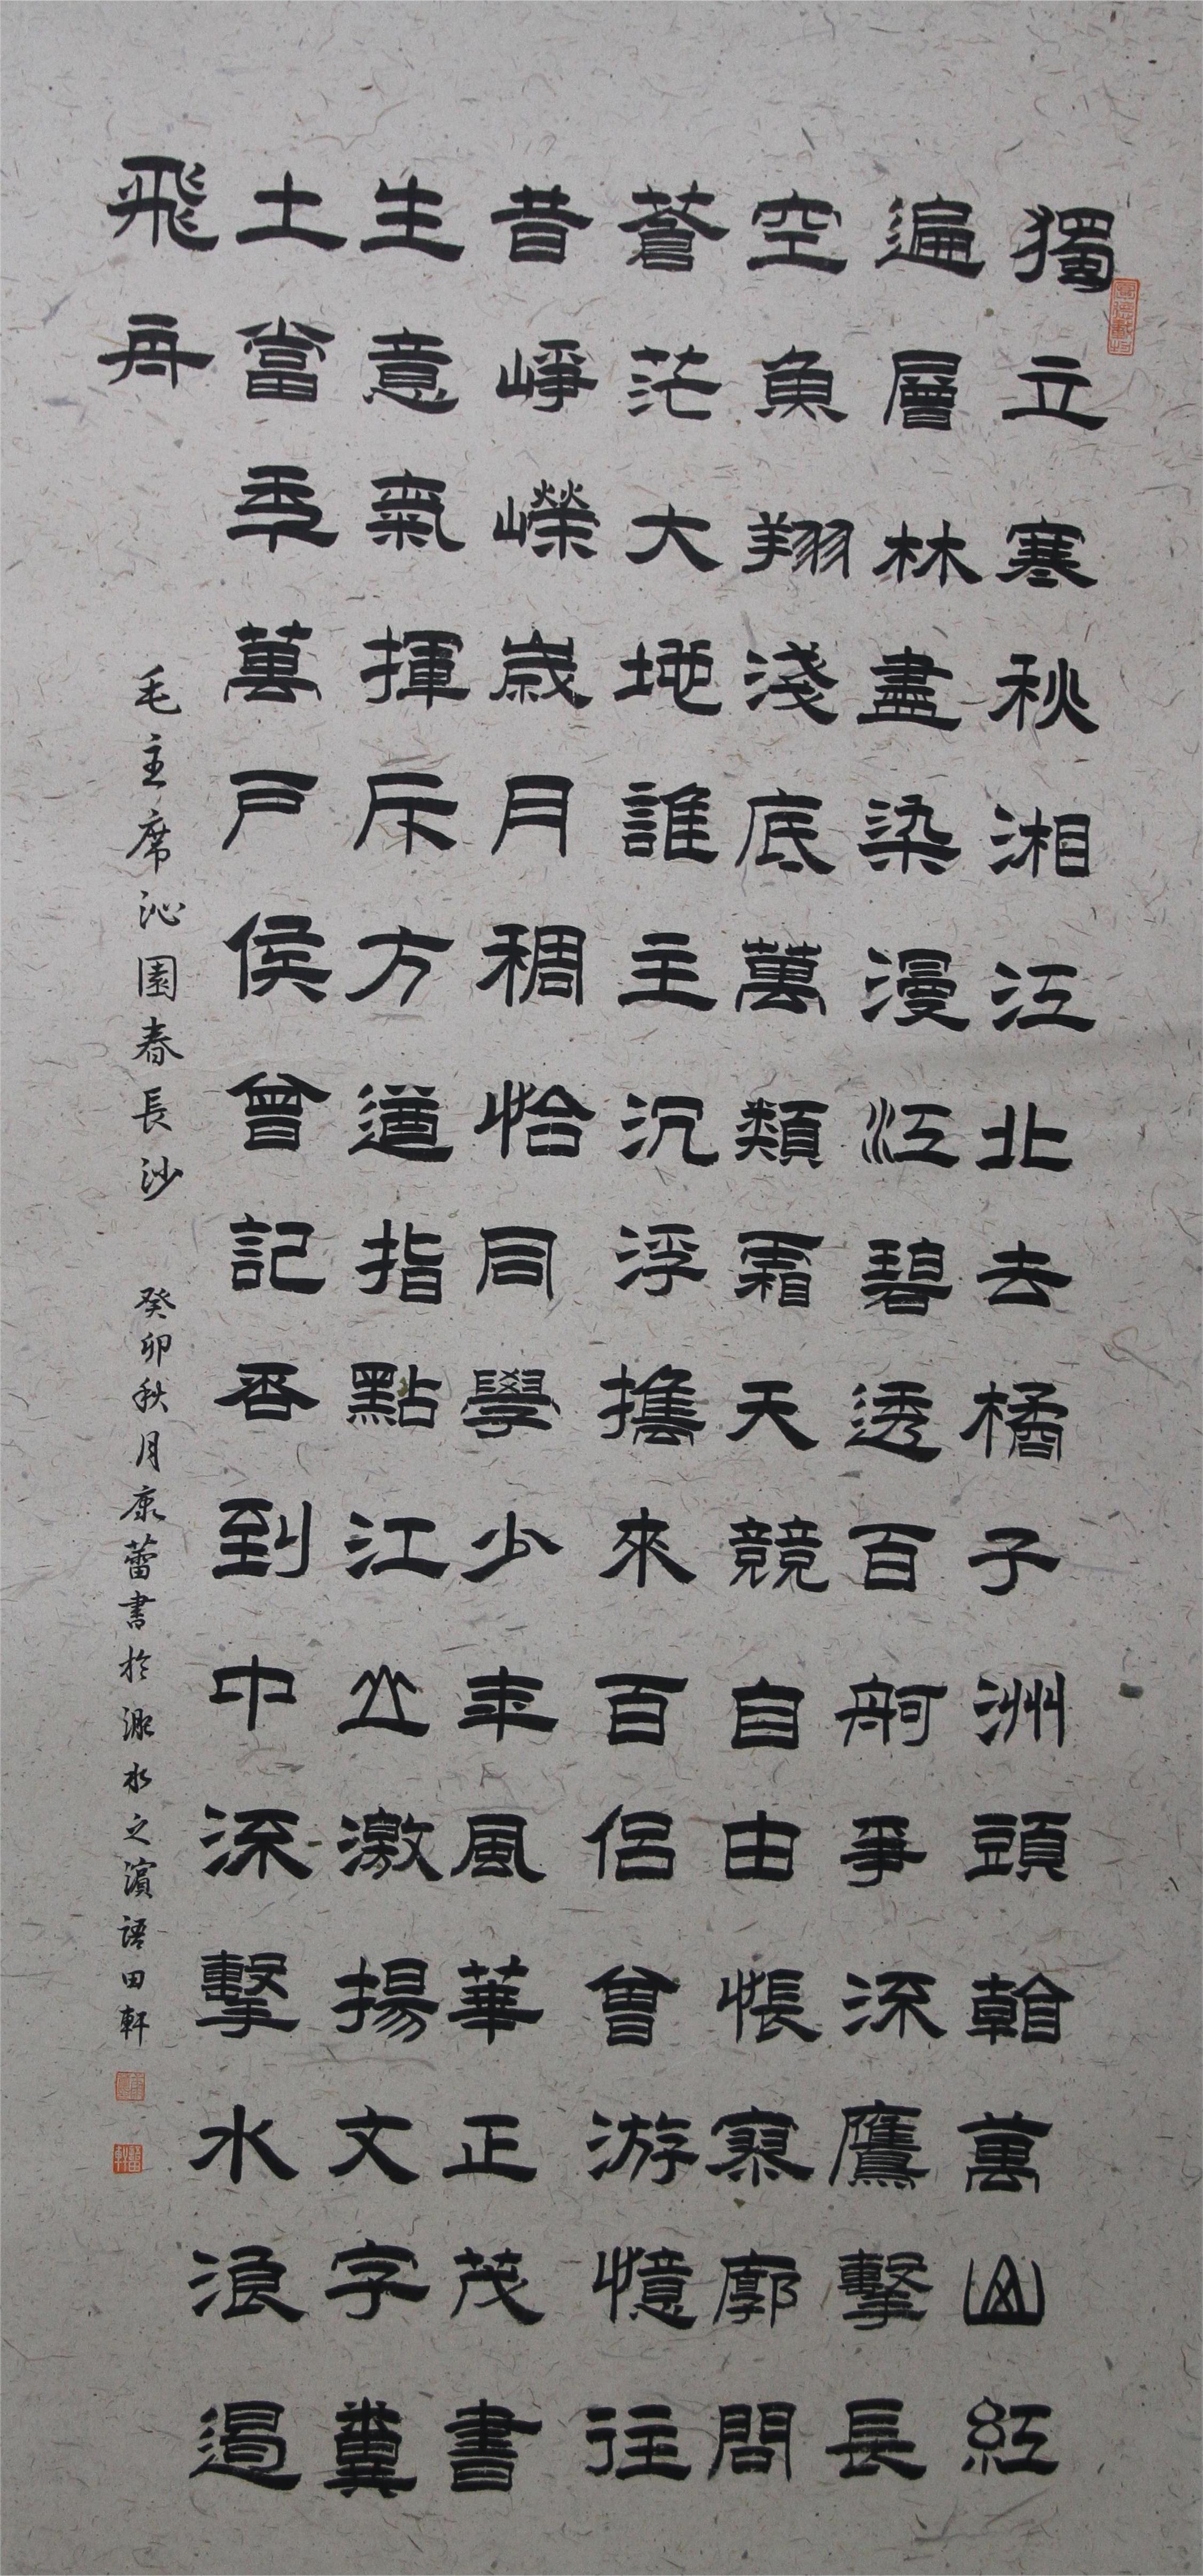 獨立寒秋湘江北去橘子洲頭看萬山紅
遍層林盡染漫江碧透百舸爭流鷹擊長
空魚翔淺底萬類霜天競自由悵寥廓問
蒼茫大地誰主沉浮攜來百侶曾游憶往
昔崢嶸歲月稠恰同學少年風華正茂書
生意氣揮斥方遒指點江山激揚文字糞
土當年萬戶侯曾記否到中流擊水浪遏
飛舟
毛主席沁園春長沙 癸卯秋月康蕾書於水之濱語田軒
厚德載物